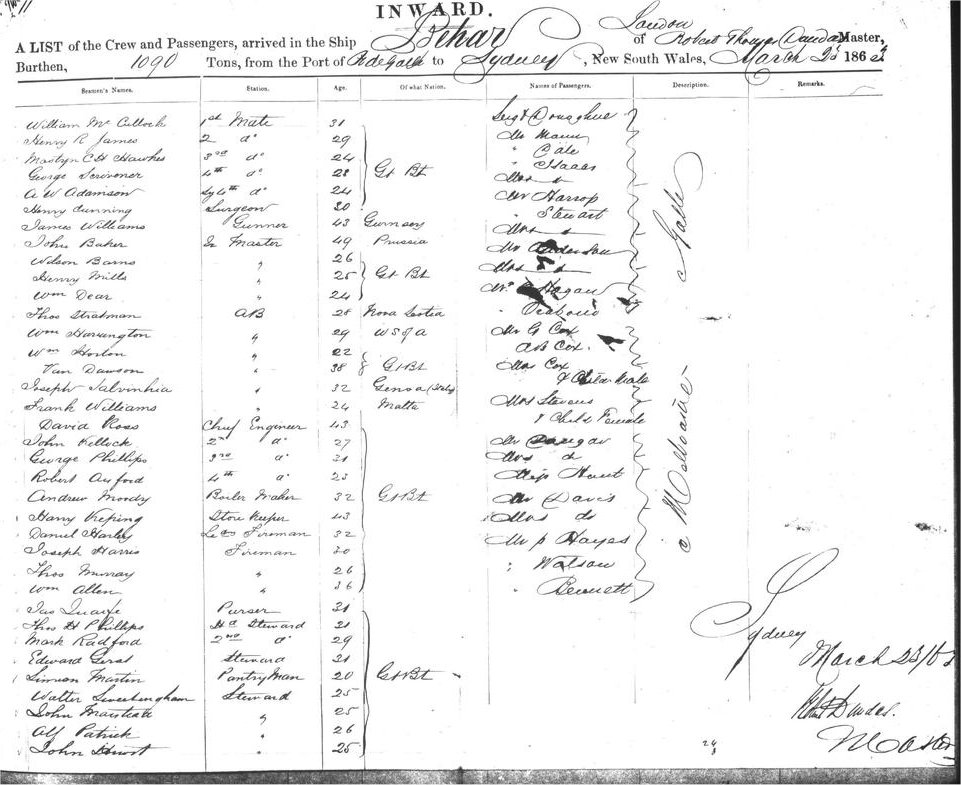 INWARD.
A LIST of the Crew and Passengers, arrived in the Ship Behar of London Robert Master,
Burthen, 1090 Tons, from the Port of to Sydney, New South Wales, March 23 186
Seamen's Names. Station. Age. Of what Nation. Names of Passengers. Description. Remarks.
William Mc Cullock 1st Mate 31 Donoghue
Henry R James 2 do 29 Mr Mann
Martyn C H Hawkes 3rd do 24 " Cale
George Scrivener 4th do 28 Gt Bt " Isaacs
A W Adamson 4th do 24 Mrs do
Henry Surgeon 30 Mr Harrop
James Williams Gunner 43 Gurnsey " Stewart
John Baker Master 49 Prussia Mrs
Wilson Barns " 26 Mr Anderson
Henry Mills " 25 Gt Bt Mrs
Wm Dear " 24 Mr Hogan
Thos Stratman AB 28 Nova Scotia "
Wm Harrington " 29 US of A Mr G Cox
Wm Horton " 22 AB Cox
Van Dawson " 38 Gt Bt Mrs Cox
Joseph Salvinhia " 32 Genoa (Italy) & Child Male
Frank Williams " 24 Malta Mrs Stevens
David Ross Chief Engineer 43 & Child Female
John Kellock 2nd do 27 Mr
George Phillips 3rd do 31 Mrs do
Robert 4th do 23 Miss Hunt
Andrew Moody Boiler Maker 32 Gt Bt Mr Davis
Harry Store Keeper 43 Mrs do
Daniel Harley Fireman 32 Mr P Hayes
Joseph Harris Fireman 30 " Watson
Thos Murray " 26 Bennett
Wm Allen " 36
Jas Quaife Purser 31
Thos H Phillips Hd Steward 31
Mark Radford 2nd do 29
Edward Steward 31
Simeon Martin Pantry Man 20 Gt Bt
Walter Steward 25
John " 25
Alf Patrick " 26
John Hurst " 25
Galle
Melbourne
Sydney
March 23/6
Master